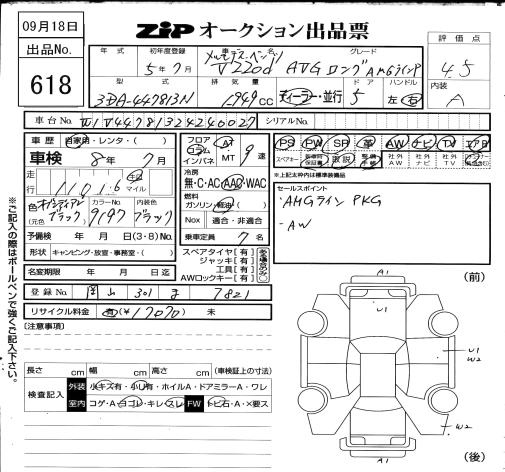 09月18日
出品No.
618
ZiP オークション出品票
年式 初年度登録 車名 グレード
5年7月 メルセデスベンツ V220d AVG ロング AMGライン P
型式 排気量 ドア ハンドル
3DA-447813N 1949cc ディーラー・並行 5 左・右
評価点
4.5
内装
A
車台No. W1V44781324240027 シリアルNo.
車歴 自家用・レンタ・( )
車検 8年7月
走行 11016 マイル
色 オブシディアンブラック カラーNo. 9197 内装色 ブラック
(元色)
予備検 年 月 日(3・8)No.
形状 キャンピング・放宣・事務室・( )
名変期限 年 月 日迄
フロア コラム インパネ AT MT 9速
冷房
無・C・AC・AAC・WAC
燃料
ガソリン・軽油( )
Nox 適合・非適合
乗車定員 7名
スペアタイヤ[有]
ジャッキ[有]
工具[有]
AWロックキー[有]
PS PW SR 革 AW ナビ TV エアB
スペアキー 新車時保証書 取説 整備手帳 社外AW 社外ナビ 社外TV
※上記太枠内は標準装備品
セールスポイント
・AMGライン PKG
・AW
登録No. 301 ま 7821
リサイクル料金 有(¥17070) 未
[注意事項]
長さ cm 幅 cm 高さ cm (車検証上の寸法)
検査記入 外装 小キズ有・小凹有・ホイルA・ドアミラーA・ワレ
室内 コゲ・A・ヨゴレ・キレ・スレ FW トビ石・A・×要ス
※ご記入の際はボールペンで強くご記入下さい。
(前)
A1
U1
U1
W2
W2
A1
(後)